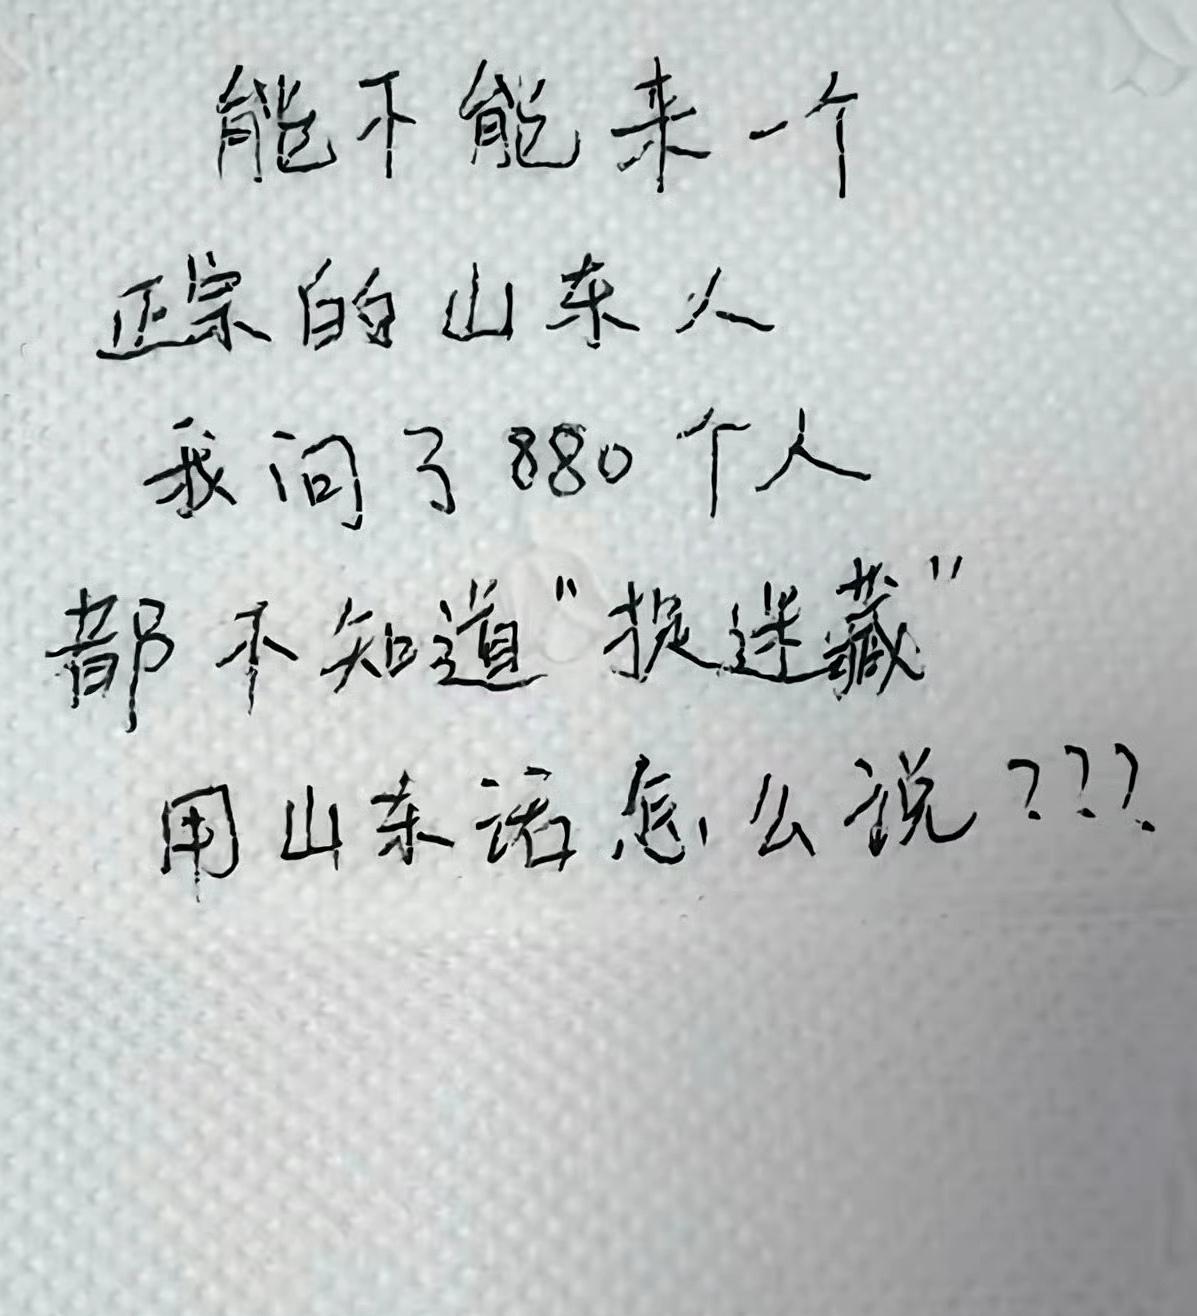 能不能来一个
正宗的山东人
我问了880个人
都不知道"捉迷藏"
用山东话怎么说???